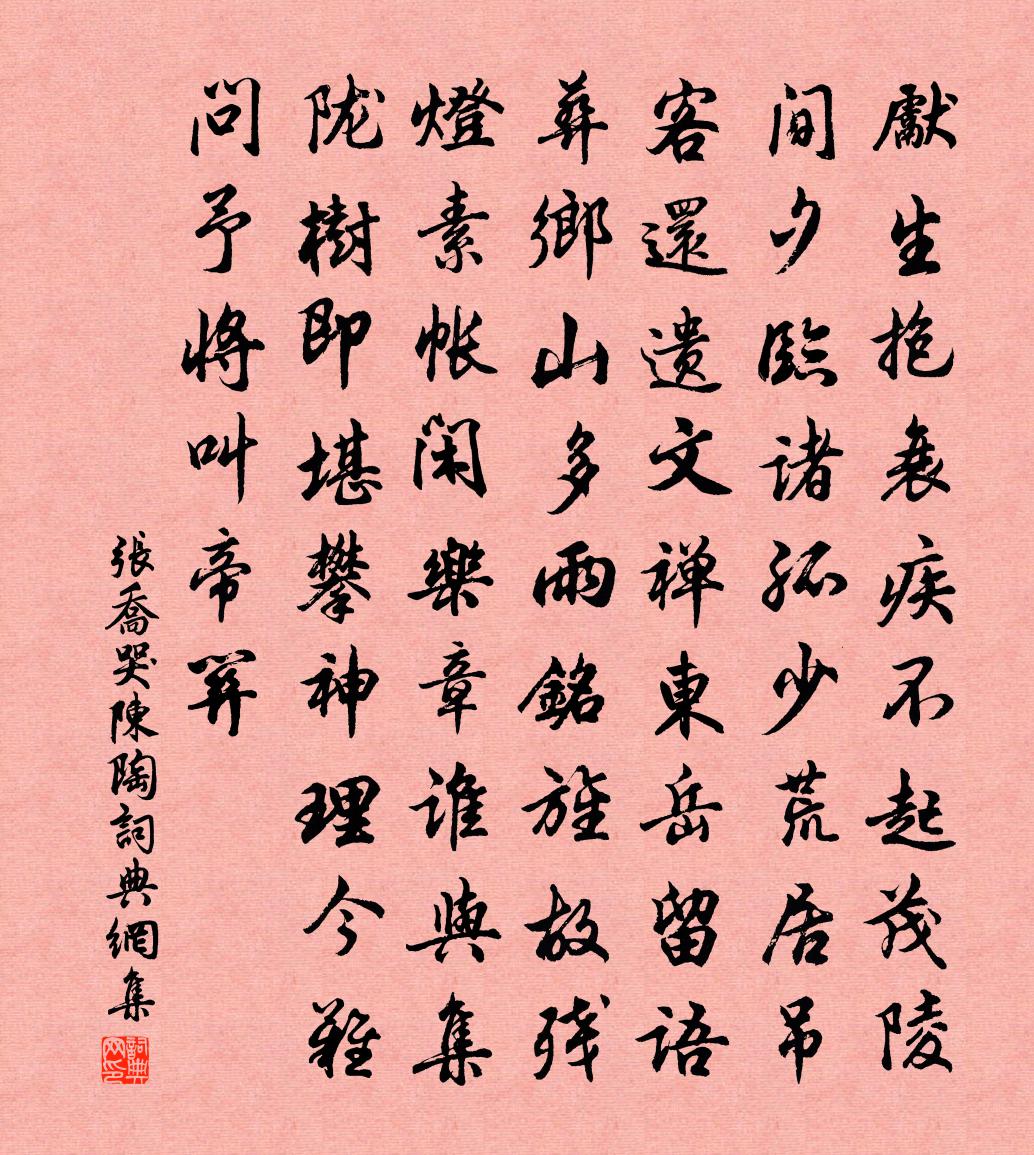 獻生抱衰疾不起茂陵
間夕臨諸孤少荒居吊
客還遺文禅東岳留語
葬鄉山多雨銘旌故残
燈素帳閑樂章誰與集
陇樹即堪攀神理今難
問予將叫帝關
張喬哭陳陶詞典網集
詞典网印